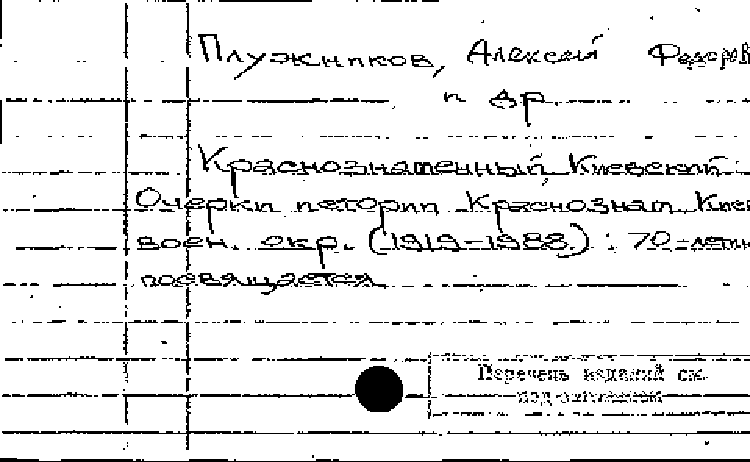 Плужников, Алексей Федоров
и др.
Краснознаменный Киевский:
Очерки истории Краснознам. Киев
воен. окр. (1919-1988) : 70-летию
посвящается
Перечень изданий см.
под заглавием